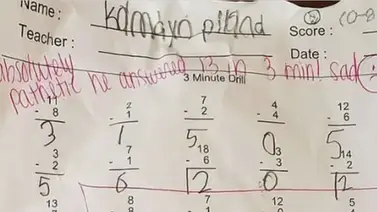 Name : Kamdyn piland
Teacher : Score : (0-8
Date :
absolutely
pathetic he answered 13 in 3 min! sad
3 Minute Drill
11 2 7 4 12
- 8 - 1 - 2 - 4 -
3 1 5 0 5
3 7 18 3 14
- 2 - 1 - 6 - 3 - 2
5 6 12 0 12
13 8 7 12 5